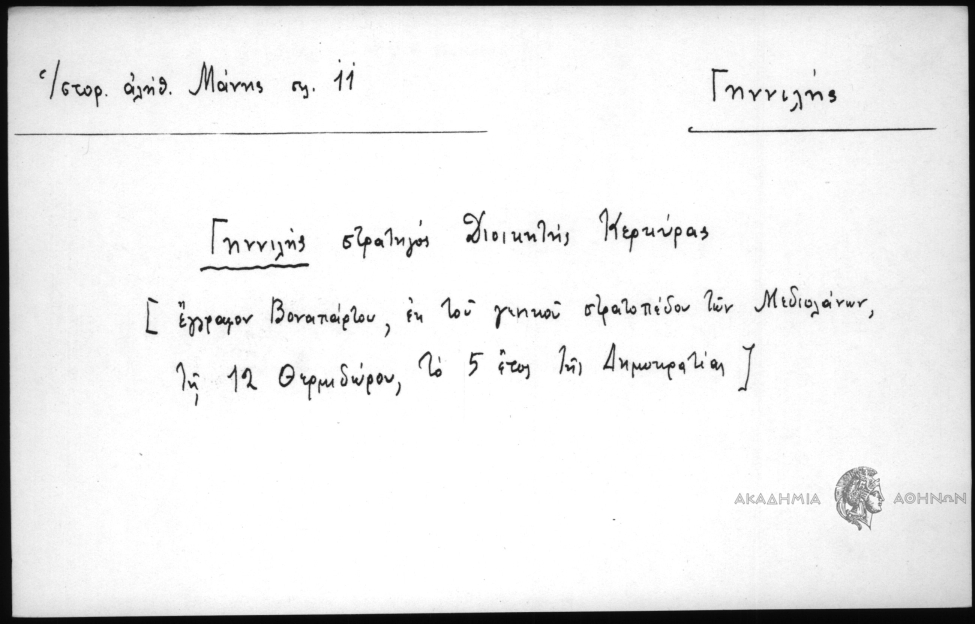 Ἱστορ. ἀλήθ. Μάνης ση. 11
Γηννιλής
Γηννιλής στρατηγός Διοικητής Κερκύρας
[ ἔγγραφον Βοναπάρτου, ἐκ τοῦ γενικοῦ στρατοπέδου τῶν Μεδιολάνων,
τῇ 12 Θερμιδώρου, τὸ 5 ἔτος τῆς Δημοκρατίας ]
ΑΚΑΔΗΜΙΑ ΑΘΗΝΩΝ